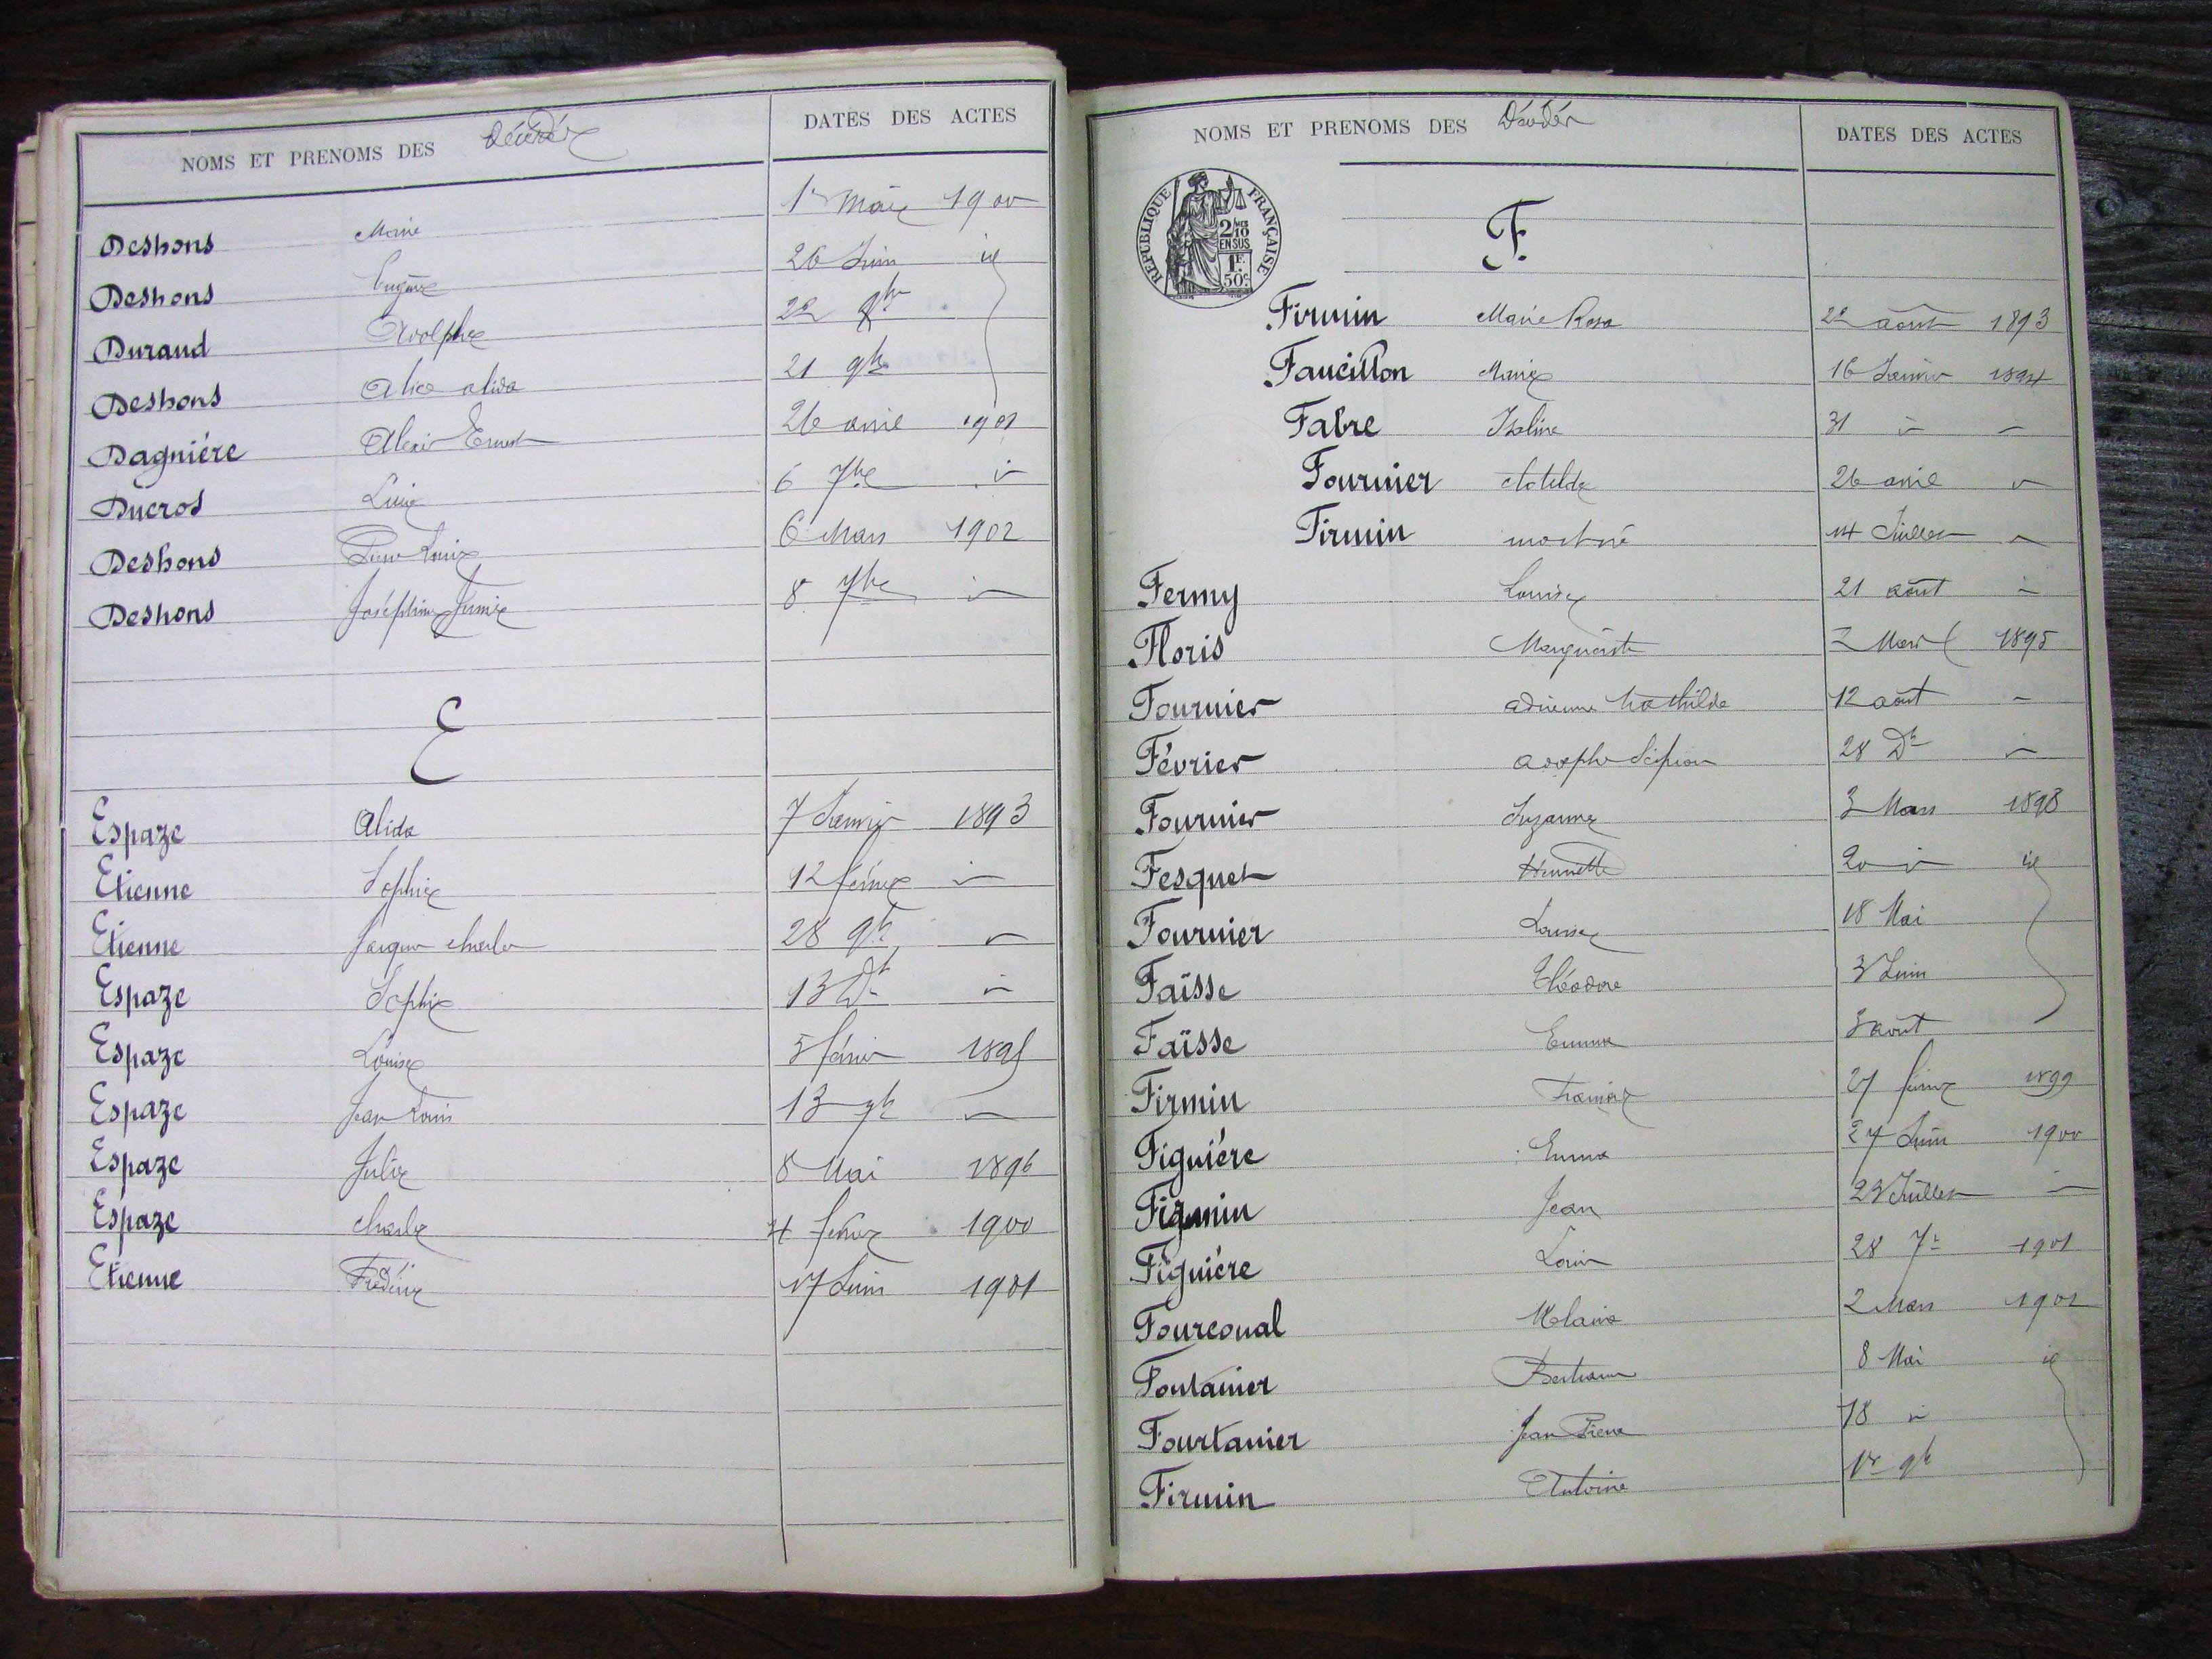 NOMS ET PRENOMS DES Décédés DATES DES ACTES
Deshons Marie 1er 1900
Deshons Eugène 26 Juin id
Durand Adolphe 22
Deshons Alice alida 21 9bre
Dagniére Alexis Ernest 26 avril 1901
Ducros 6 7bre
Deshons Pierre Louis 6 Mars 1902
Deshons Joséphine 8 7bre
E
Espaze Alida 7 Janvier 1893
Etienne Sophie 12 février
Etienne Jacques charles 28 9b
Espaze Sophie 13 Db
Espaze Louise 5 février 1895
Espaze Jean Louis 13
Espaze Julie 8 Mai 1896
Espaze charles 4 février 1900
Etienne Frédéric 17 Juin 1901
NOMS ET PRENOMS DES Décédés DATES DES ACTES
REPUBLIQUE FRANÇAISE
2/10 EN SUS
1F. 50c.
F.
Firmin Marie Rosa 22 août 1893
Faucillon Marie 16 Janvier 1894
Fabre Isaline 31
Fournier clotilde 26 avril
Firmin mort né 14 Juillet
Fermy Louise 21 août
Floris Marguerite 2 Mars 1895
Fournier adrienne Mathilde 12 août
Février adolphe Scipion 28 Db
Fournier Suzanne 3 Mars 1898
Fesquet Henriette 20 id
Fournier Louise 18 Mai
Faïsse Théodore 3 Juin
Faïsse Emma 3 août
Firmin 27 février 1899
Figuiére Emma 27 Juin 1900
Firmin Jean 23 Juillet
Figuiére Louis 28 7b 1901
Fourcoual 2 Mars 1902
Fontanier 8 Mai id
Fourtanier Jean Pierre 18
Firmin Antoine 1er 9b